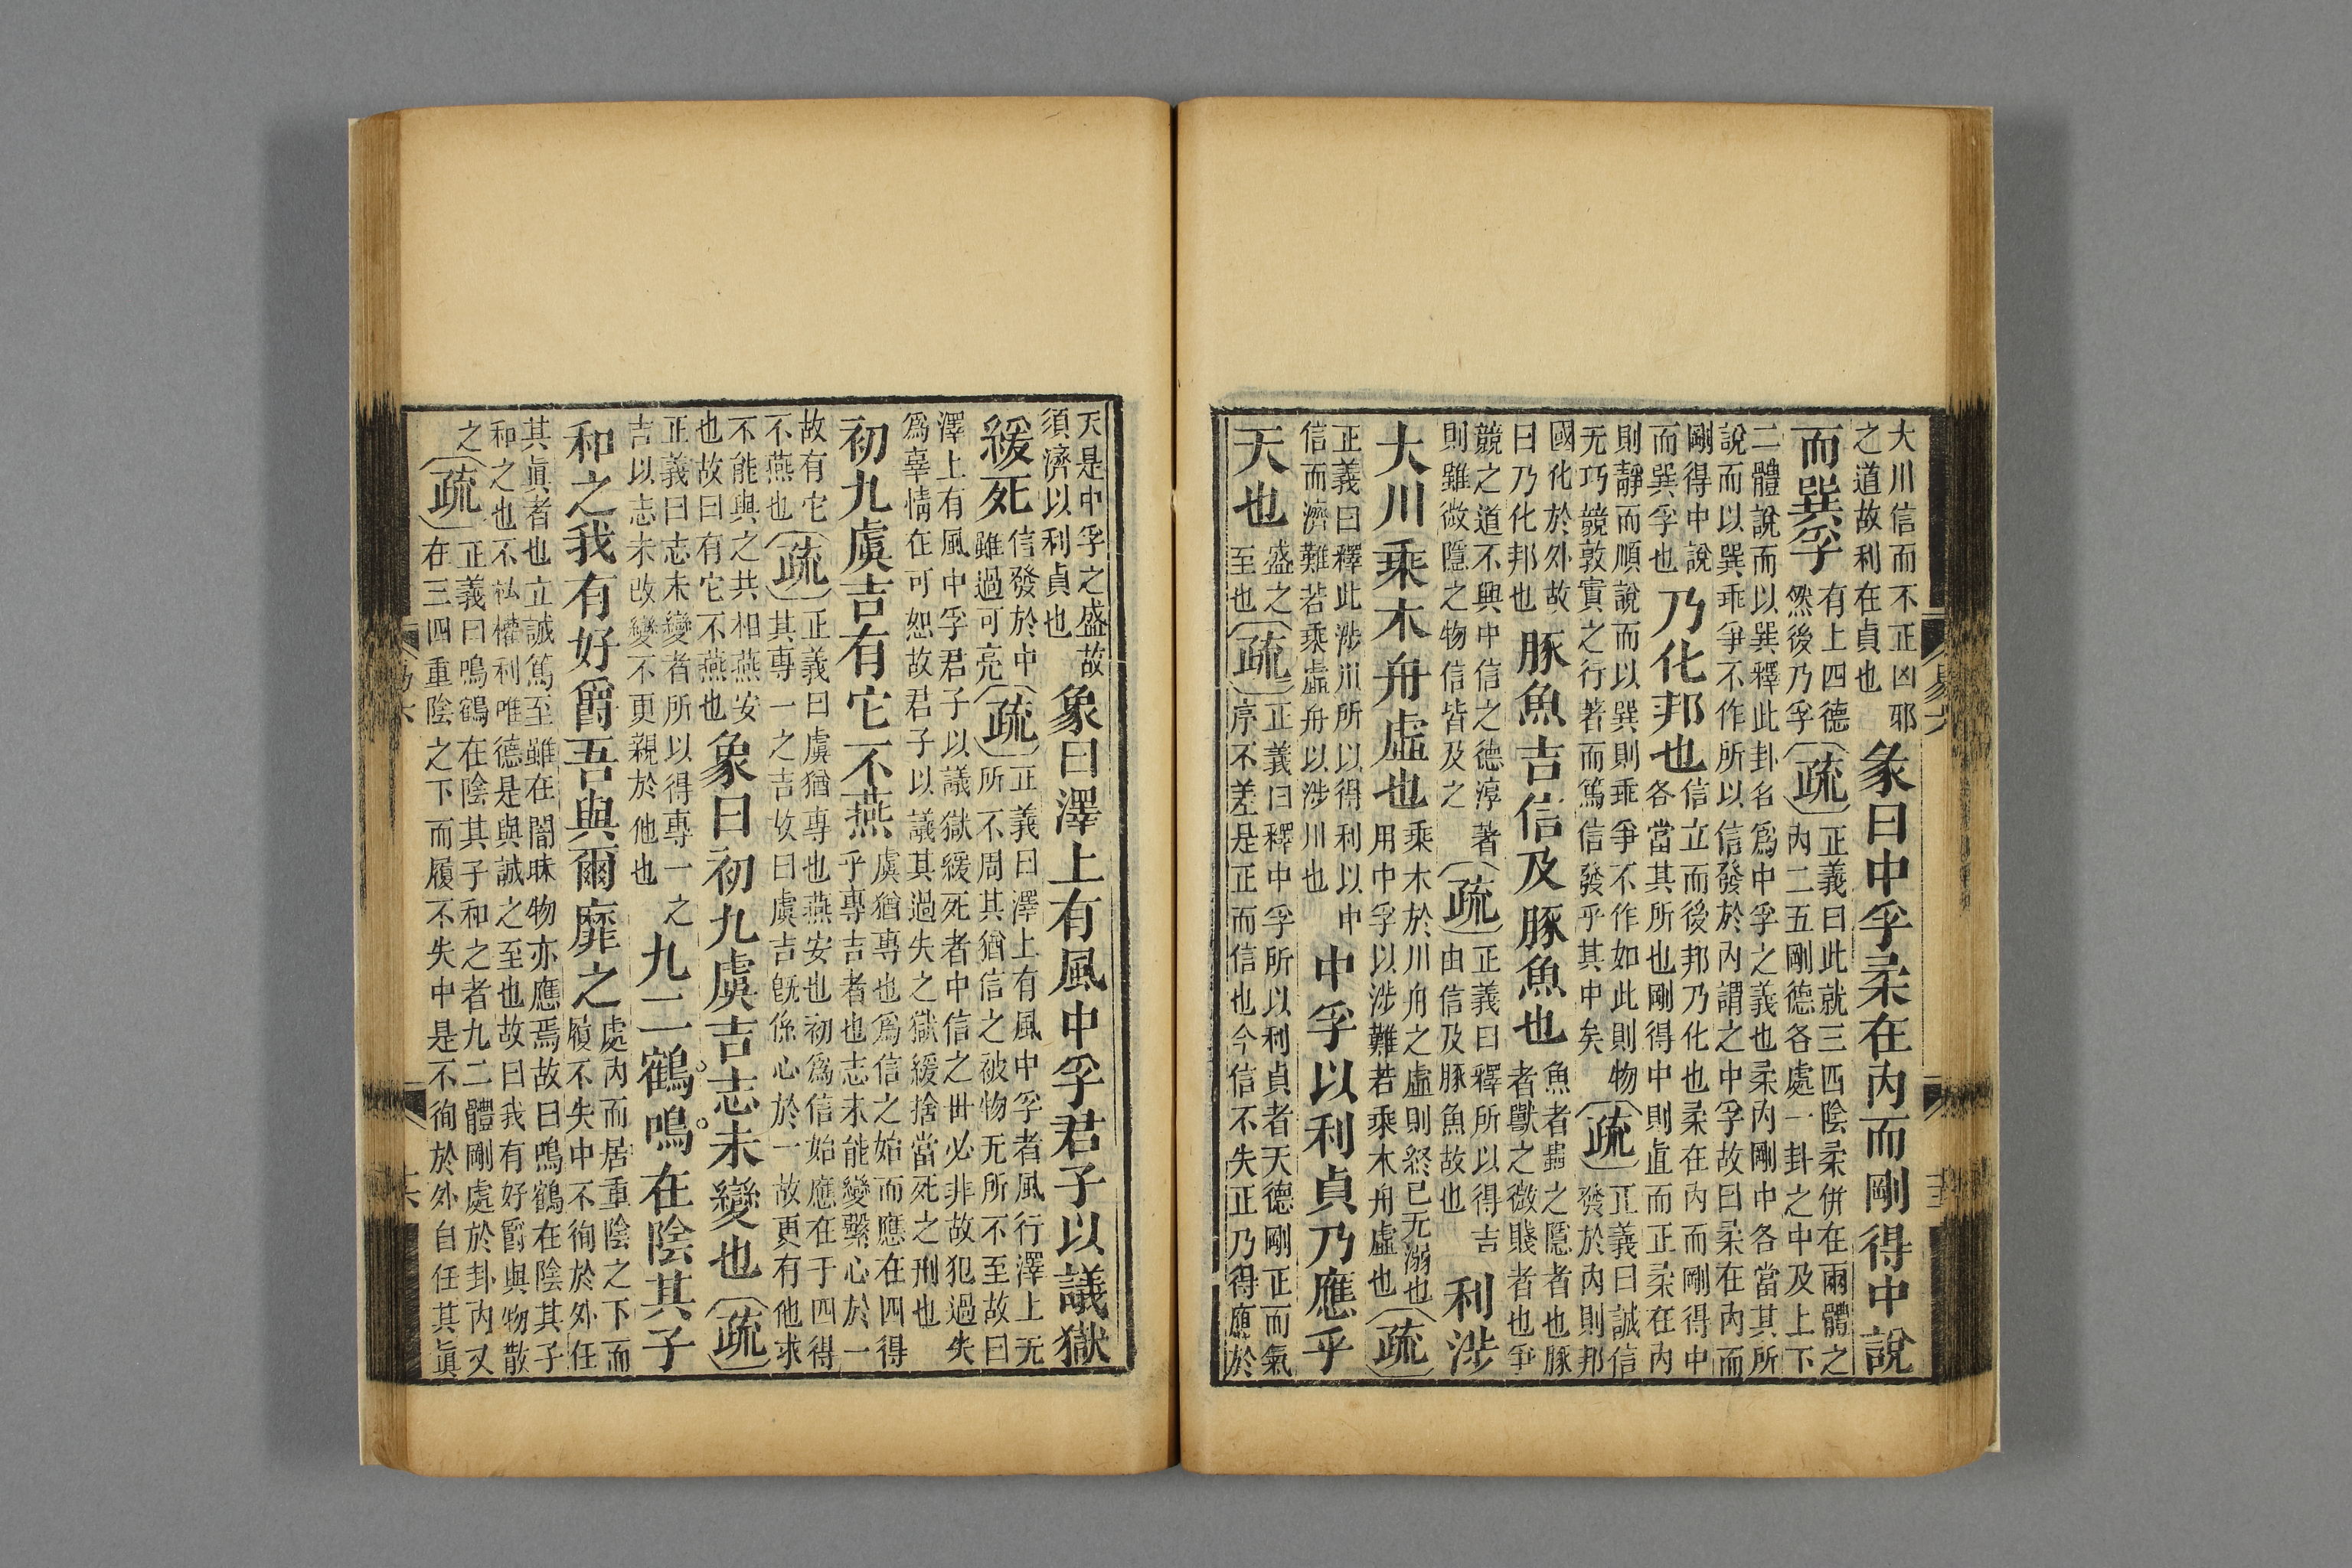 大川信而不正凶耶之道故利在貞也彖曰中孚柔在內而剛得中說
而巽孚有上四德然後乃孚疏正義曰此就三四陰柔併在兩體之內二五剛德各處一卦之中及上下
二體說而以巽釋此卦名爲中孚之義也柔內剛中各當其所說而以巽乖爭不作所以信發於內謂之中孚故曰柔在內而
剛得中說而巽孚也乃化邦也信立而後邦乃化也柔在內而剛得中各當其所也剛得中則直而正柔在內
則靜而順說而以巽則乖爭不作如此則物无巧競敦實之行著而篤信發乎其中矣疏正義曰誠信發於內則邦
國化於外故曰乃化邦也豚魚吉信及豚魚也魚者蟲之隱者也豚者獸之微賤者也爭
競之道不興中信之德淳著則雖微隱之物信皆及之疏正義曰釋所以得吉由信及豚魚故也利涉
大川乘木舟虛也乘木於川舟之虛則終已无溺也用中孚以涉難若乘木舟虛也疏
正義曰釋此涉川所以得利以中信而濟難若乘虛舟以涉川也中孚以利貞乃應乎
天也盛之至也疏正義曰釋中孚所以利貞者天德剛正而氣序不差是正而信也今信不失正乃得應於
易六
天是中孚之盛故須濟以利貞也象曰澤上有風中孚君子以議獄
緩死信發於中雖過可亮疏正義曰澤上有風中孚者風行澤上无所不周其猶信之被物无所不至故曰
澤上有風中孚君子以議獄緩死者中信之世必非故犯過失爲辜情在可恕故君子以議其過失之獄緩捨當死之刑也
初九虞吉有它不燕虞猶專也爲信之始而應在四得乎專吉者也志未能變繫心於一
故有它不燕也疏正義曰虞猶專也燕安也初爲信始應在于四得其專一之吉故曰虞吉旣係心於一故更有他求
不能與之共相燕安也故曰有它不燕也象曰初九虞吉志未變也疏
正義曰志未變者所以得專一之吉以志未改變不更親於他也九二鶴鳴在陰其子
和之我有好爵吾與爾靡之處內而居重陰之下而履不失中不徇於外任
其眞者也立誠篤至雖在闇昧物亦應焉故曰鳴鶴在陰其子和之也不私權利唯德是與誠之至也故曰我有好爵與物散
之疏正義曰鳴鶴在陰其子和之者九二體剛處於卦內又在三四重陰之下而履不失中是不徇於外自任其眞